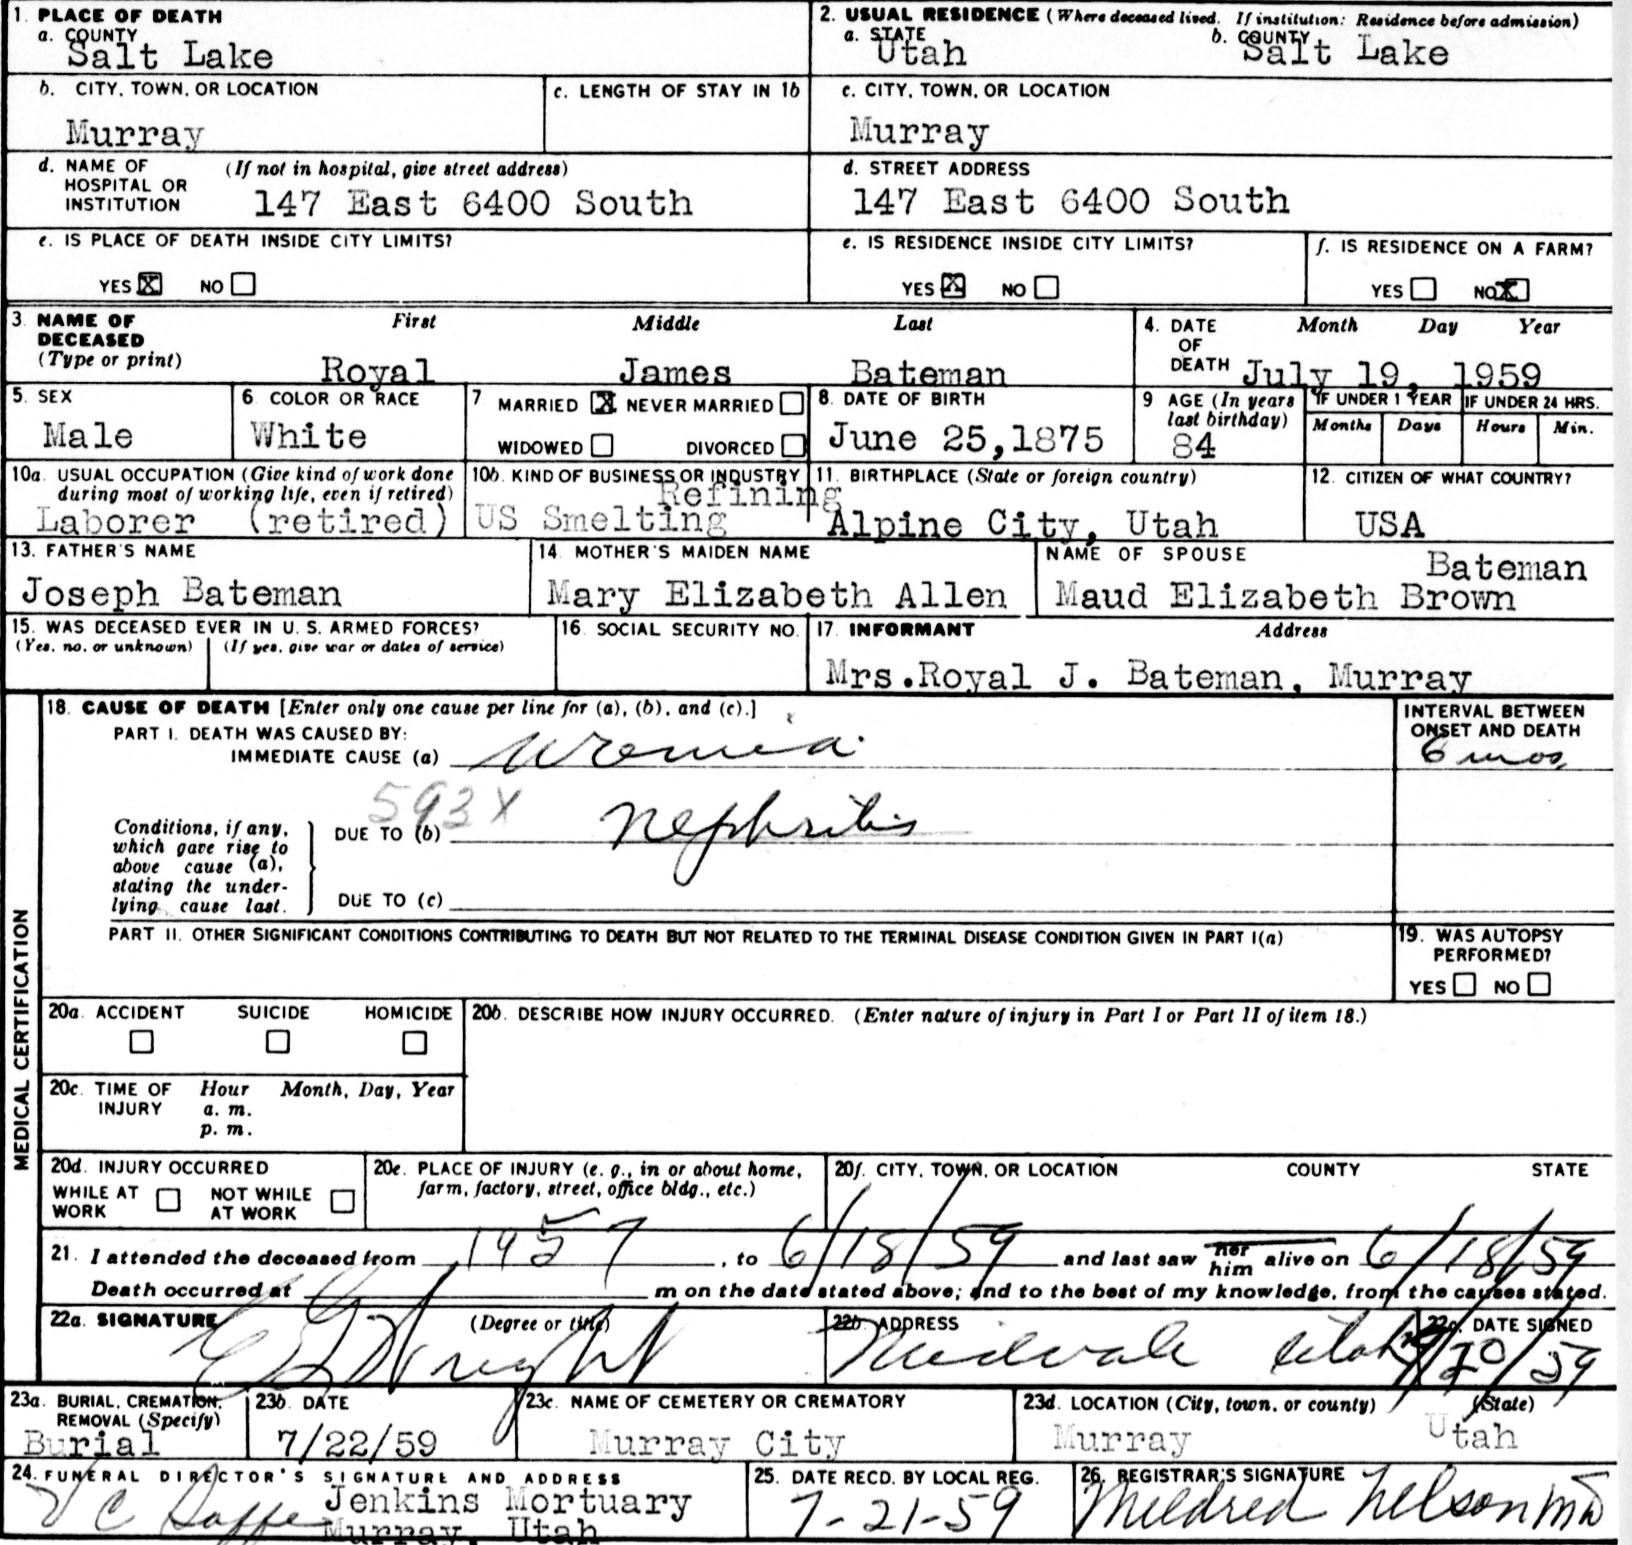 1. PLACE OF DEATH
a. COUNTY
Salt Lake
2. USUAL RESIDENCE (Where deceased lived. If institution: Residence before admission)
a. STATE
Utah
b. COUNTY
Salt Lake
b. CITY, TOWN, OR LOCATION
Murray
c. LENGTH OF STAY IN 1b
c. CITY, TOWN, OR LOCATION
Murray
d. NAME OF HOSPITAL OR INSTITUTION
(If not in hospital, give street address)
147 East 6400 South
d. STREET ADDRESS
147 East 6400 South
e. IS PLACE OF DEATH INSIDE CITY LIMITS?
YES X NO
e. IS RESIDENCE INSIDE CITY LIMITS?
YES X NO
f. IS RESIDENCE ON A FARM?
YES NO X
3. NAME OF DECEASED
(Type or print)
First Middle Last
Royal James Bateman
4. DATE OF DEATH
Month Day Year
July 19, 1959
5. SEX
Male
6. COLOR OR RACE
White
7 MARRIED X NEVER MARRIED
WIDOWED DIVORCED
8. DATE OF BIRTH
June 25,1875
9 AGE (In years last birthday)
84
IF UNDER 1 YEAR
Months Days
IF UNDER 24 HRS.
Hours Min.
10a. USUAL OCCUPATION (Give kind of work done
during most of working life, even if retired)
Laborer (retired)
10b. KIND OF BUSINESS OR INDUSTRY
Refining
US Smelting
11. BIRTHPLACE (State or foreign country)
Alpine City, Utah
12. CITIZEN OF WHAT COUNTRY?
USA
13. FATHER'S NAME
Joseph Bateman
14. MOTHER'S MAIDEN NAME
Mary Elizabeth Allen
NAME OF SPOUSE
Bateman
Maud Elizabeth Brown
15. WAS DECEASED EVER IN U. S. ARMED FORCES?
(Yes, no, or unknown) (If yes, give war or dates of service)
16. SOCIAL SECURITY NO.
17. INFORMANT Address
Mrs.Royal J. Bateman, Murray
MEDICAL CERTIFICATION
18. CAUSE OF DEATH [Enter only one cause per line for (a), (b), and (c).]
PART I. DEATH WAS CAUSED BY:
IMMEDIATE CAUSE (a) Uremia
INTERVAL BETWEEN
ONSET AND DEATH
6 mos.
593X
Conditions, if any,
which gave rise to
above cause (a),
stating the under-
lying cause last.
DUE TO (b) Nephritis
DUE TO (c)
PART II. OTHER SIGNIFICANT CONDITIONS CONTRIBUTING TO DEATH BUT NOT RELATED TO THE TERMINAL DISEASE CONDITION GIVEN IN PART I(a)
19. WAS AUTOPSY
PERFORMED?
YES NO
20a. ACCIDENT SUICIDE HOMICIDE
20b. DESCRIBE HOW INJURY OCCURRED. (Enter nature of injury in Part I or Part II of item 18.)
20c. TIME OF INJURY
Hour Month, Day, Year
a. m.
p. m.
20d. INJURY OCCURRED
WHILE AT WORK NOT WHILE AT WORK
20e. PLACE OF INJURY (e. g., in or about home,
farm, factory, street, office bldg., etc.)
20f. CITY, TOWN, OR LOCATION COUNTY STATE
21. I attended the deceased from 1957, to 6/18/59 and last saw her him alive on 6/18/59
Death occurred at m on the date stated above; and to the best of my knowledge, from the causes stated.
22a. SIGNATURE (Degree or title)
Wright
22b. ADDRESS
Midvale Utah
22c. DATE SIGNED
7/20/59
23a. BURIAL, CREMATION,
REMOVAL (Specify)
Burial
23b. DATE
7/22/59
23c. NAME OF CEMETERY OR CREMATORY
Murray City
23d. LOCATION (City, town, or county) (State)
Murray Utah
24. FUNERAL DIRECTOR'S SIGNATURE AND ADDRESS
Jenkins Mortuary
Murray, Utah
25. DATE RECD. BY LOCAL REG.
7-21-59
26. REGISTRAR'S SIGNATURE
Mildred Nelson MD